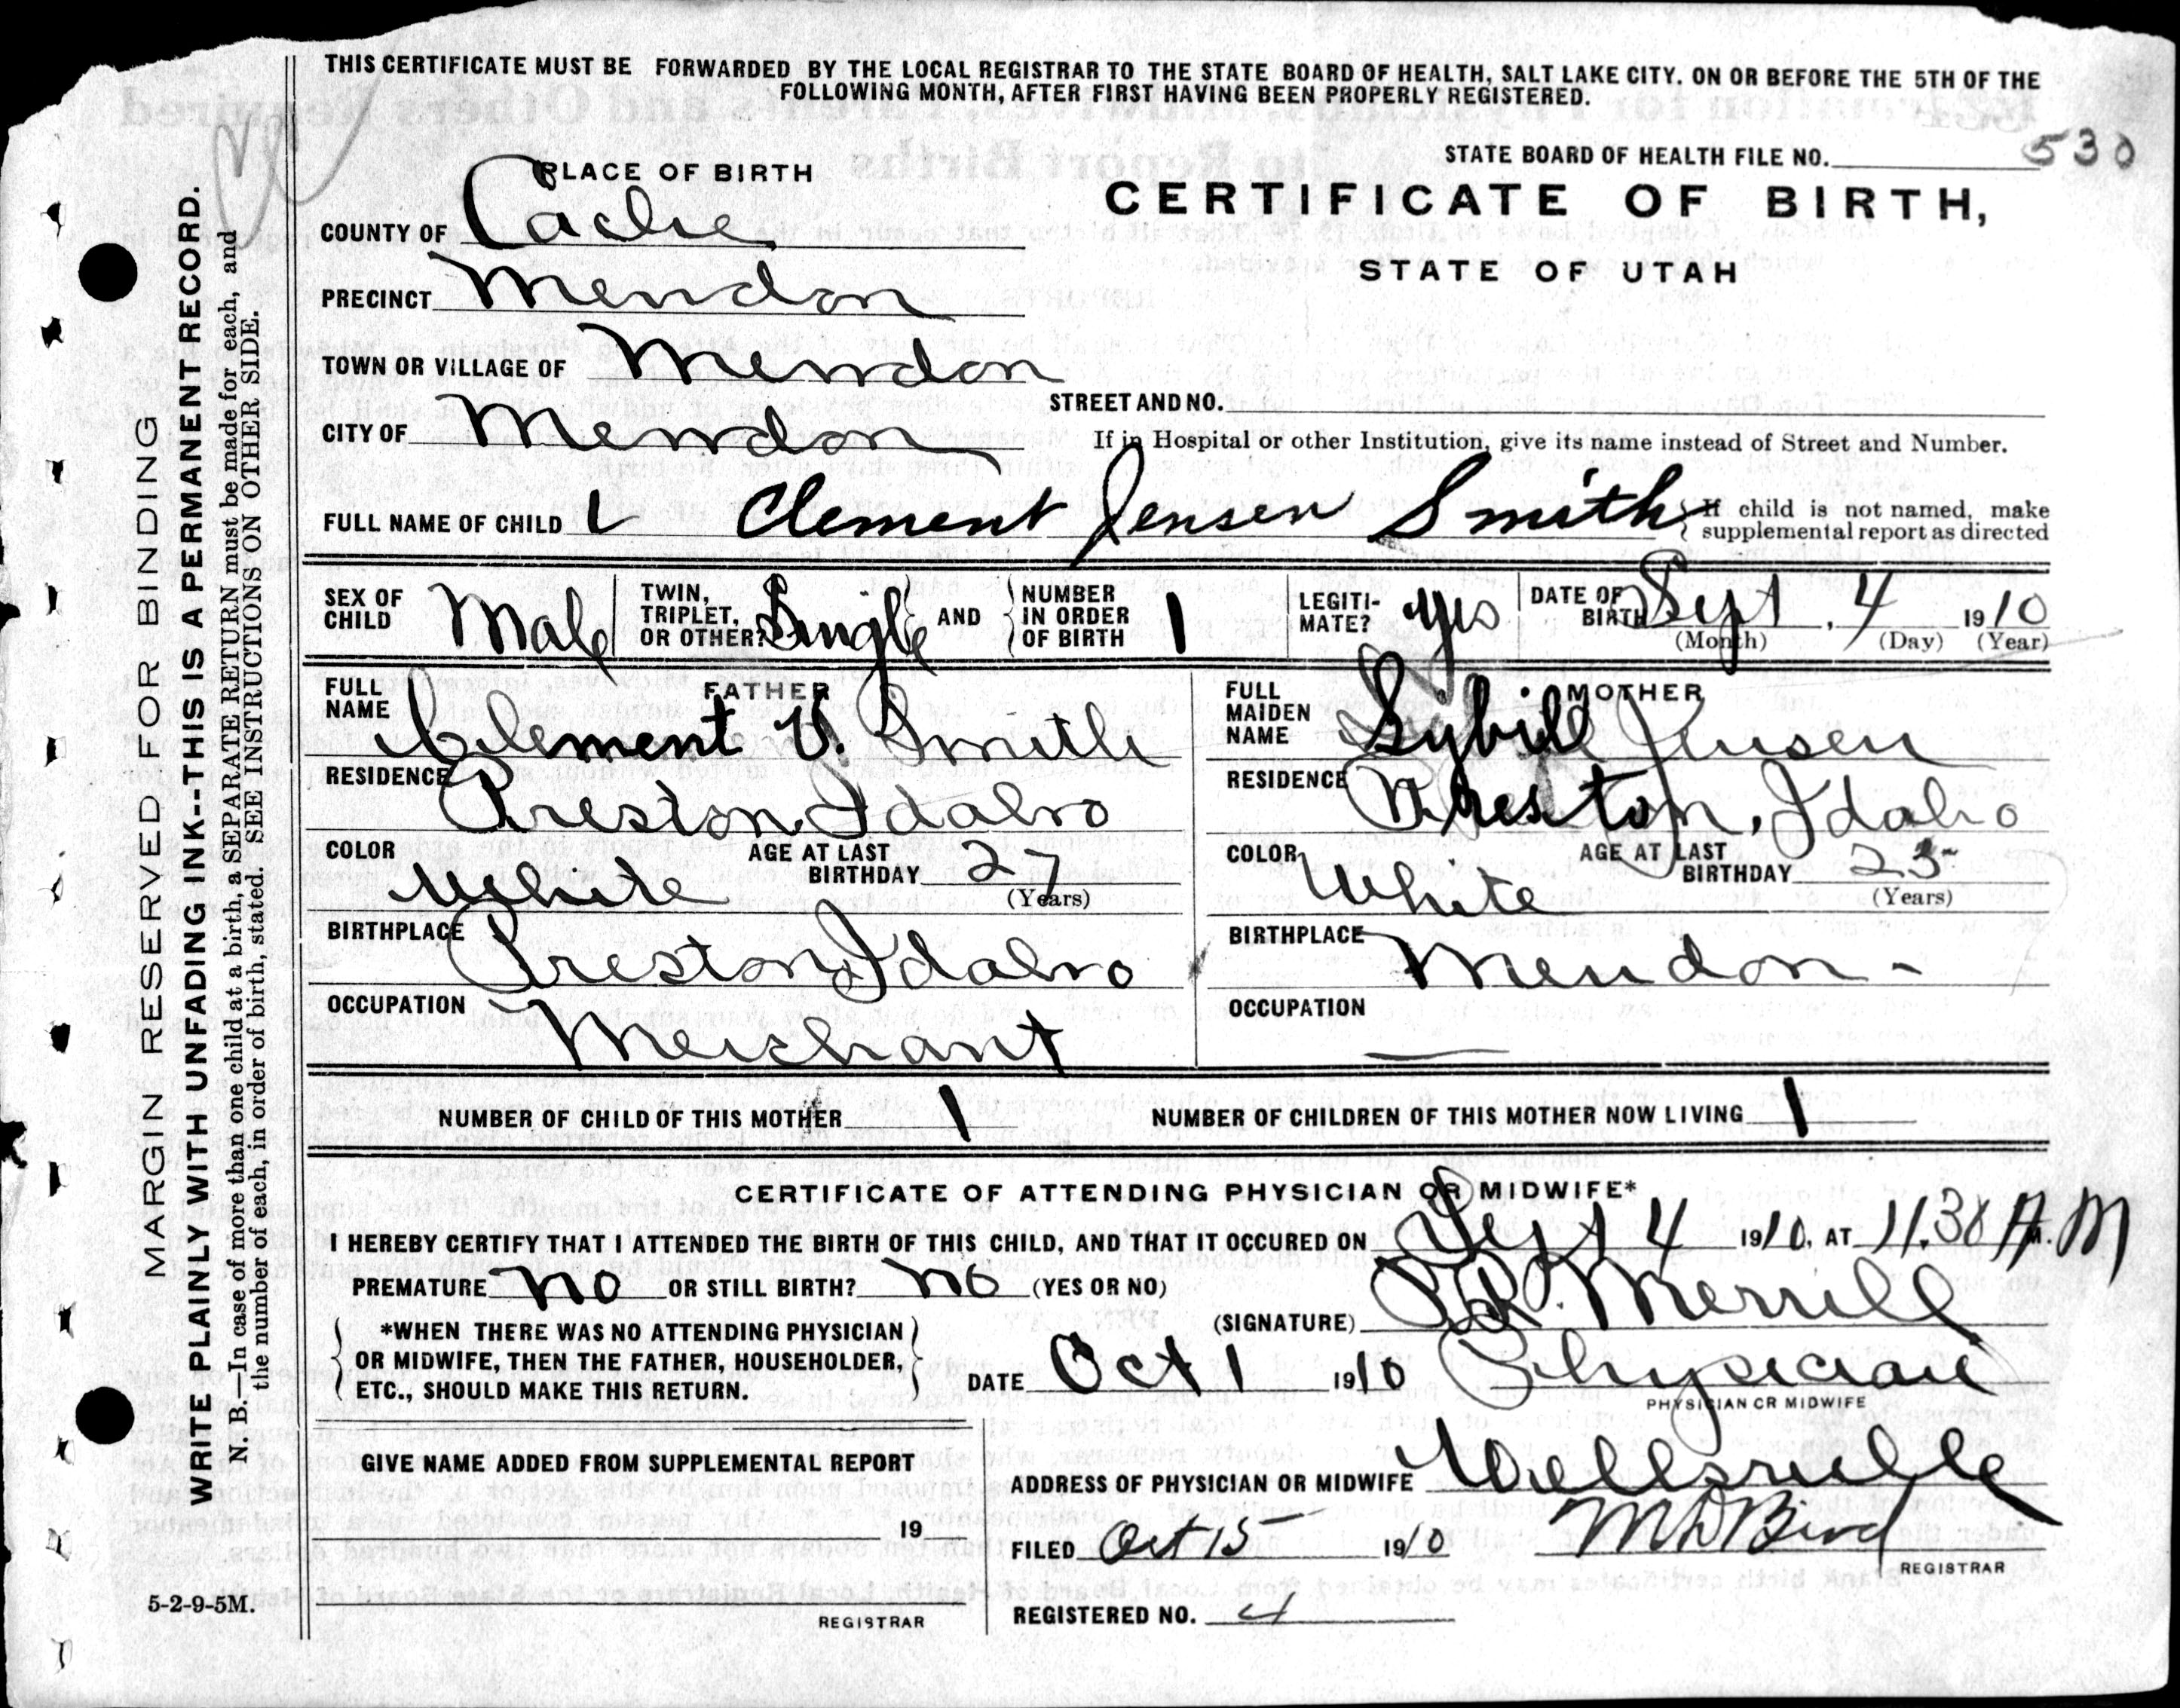 THIS CERTIFICATE MUST BE FORWARDED BY THE LOCAL REGISTRAR TO THE STATE BOARD OF HEALTH, SALT LAKE CITY. ON OR BEFORE THE 5TH OF THE
FOLLOWING MONTH, AFTER FIRST HAVING BEEN PROPERLY REGISTERED.
STATE BOARD OF HEALTH FILE NO. 530
PLACE OF BIRTH
CERTIFICATE OF BIRTH,
STATE OF UTAH
COUNTY OF Cache
PRECINCT Mendon
TOWN OR VILLAGE OF Mendon
STREET AND NO.
CITY OF Mendon
If in Hospital or other Institution, give its name instead of Street and Number.
FULL NAME OF CHILD Clement Jensen Smith { If child is not named, make
supplemental report as directed
SEX OF CHILD Male
TWIN, TRIPLET, OR OTHER? Single } AND { NUMBER IN ORDER OF BIRTH 1
LEGITI-MATE? yes
DATE OF BIRTH Sept. 4 1910
(Month) (Day) (Year)
FATHER
FULL NAME Clement V. Smith
RESIDENCE Preston Idaho
COLOR White AGE AT LAST BIRTHDAY 27
(Years)
BIRTHPLACE Preston Idaho
OCCUPATION Merchant
MOTHER
FULL MAIDEN NAME Sybill Jensen
RESIDENCE Preston, Idaho
COLOR White AGE AT LAST BIRTHDAY
(Years)
BIRTHPLACE Mendon -
OCCUPATION —
NUMBER OF CHILD OF THIS MOTHER 1 NUMBER OF CHILDREN OF THIS MOTHER NOW LIVING 1
CERTIFICATE OF ATTENDING PHYSICIAN OR MIDWIFE*
I HEREBY CERTIFY THAT I ATTENDED THE BIRTH OF THIS CHILD, AND THAT IT OCCURED ON Sept 4 1910, AT 11.30 A.M
PREMATURE no OR STILL BIRTH? no (YES OR NO)
(SIGNATURE) Merrill
{ *WHEN THERE WAS NO ATTENDING PHYSICIAN }
OR MIDWIFE, THEN THE FATHER, HOUSEHOLDER,
ETC., SHOULD MAKE THIS RETURN.
DATE Oct 1 1910 Physician
PHYSICIAN OR MIDWIFE
GIVE NAME ADDED FROM SUPPLEMENTAL REPORT
19
REGISTRAR
ADDRESS OF PHYSICIAN OR MIDWIFE Wellsville
FILED Oct 15 1910 M D Bird
REGISTRAR
REGISTERED NO. 4
5-2-9-5M.
MARGIN RESERVED FOR BINDING
WRITE PLAINLY WITH UNFADING INK--THIS IS A PERMANENT RECORD.
N. B.—In case of more than one child at a birth, a SEPARATE RETURN must be made for each, and
the number of each, in order of birth, stated. SEE INSTRUCTIONS ON OTHER SIDE.